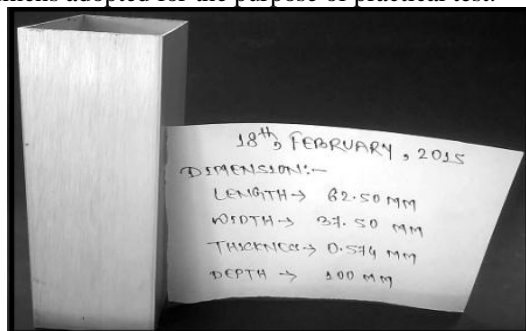 mens adopted for the purpose of practical test.
18th, FEBRUARY, 2015
DIMENSION:-
LENGTH → 62.50 MM
WIDTH → 37.50 MM
THICKNESS → 0.574 MM
DEPTH → 100 MM